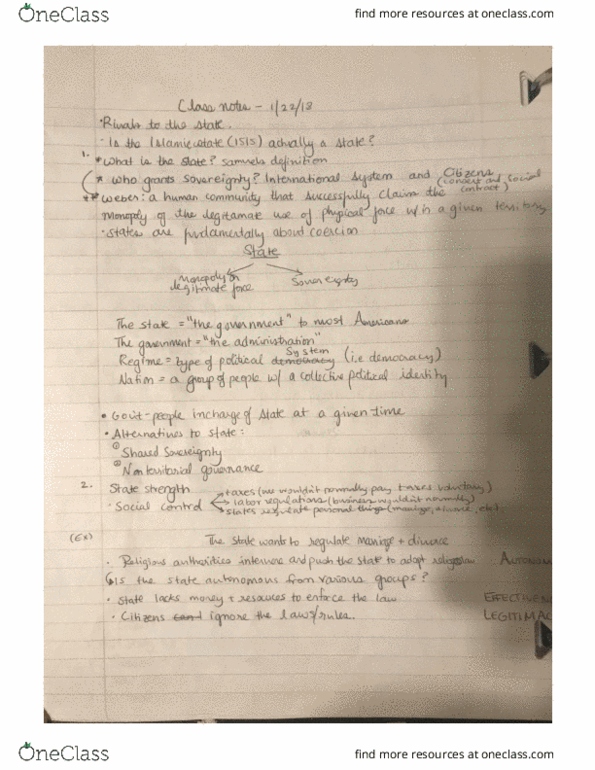 OneClass
find more resources at oneclass.com
Class notes - 1/22/18
• Rivals to the state.
- Is the Islamic state (ISIS) actually a state?
1. * What is the state? samuels definition
* who grants sovereignty? International System and Citizens (consent and social contract)
** Weber: a human community that successfully claim the
monopoly of the legitamate use of physical force w/in a given territory
• states are fundamentally about coercion
State
Monopoly on legitimate force
Sovereignty
The state = "the government" to most Americans
The government = "the administration"
Regime = type of political democracy System (i.e democracy)
Nation = a group of people w/ a collective political identity
• Gov't - people in charge of state at a given time
• Alternatives to state:
① Shared Sovereignty
② Nonterritorial governance
2. State strength
taxes (we wouldn't normally pay taxes voluntary)
· Social control
labor regulations (business wouldn't normally)
states regulate personal things (marriage, divorce, etc)
(EX) The state wants to regulate marriage + divorce
· Religious authorities intervene and push the state to adopt
AUTONOM
Is the state autonomous from various groups?
· State lacks money + resources to enforce the law
EFFECTIVEN
· Citizens ignore the laws/rules.
LEGITIMAC
OneClass
find more resources at oneclass.com